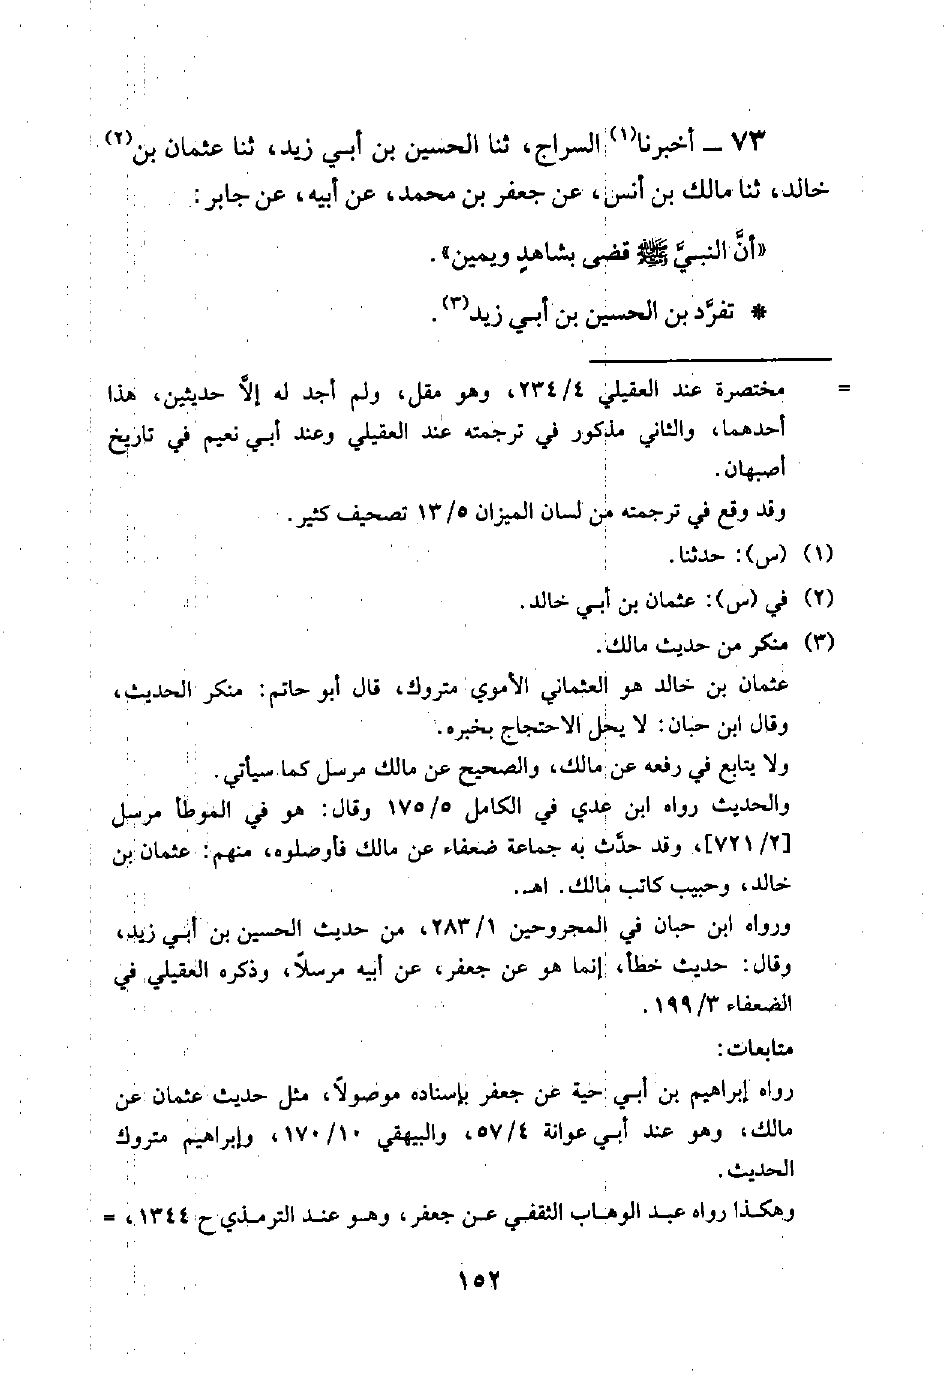 ٧٣ ــ أخبرنا(١) السراج، ثنا الحسين بن أبي زيد، ثنا عثمان بن(٢)
خالد، ثنا مالك بن أنس، عن جعفر بن محمد، عن أبيه، عن جابر:
«أنَّ النبيَّ ﷺ قضى بشاهدٍ ويمين».
* تفرَّد بن الحسين بن أبي زيد(٣).
= مختصرة عند العقيلي ٢٣٤/٤، وهو مقل، ولم أجد له إلاَّ حديثين، هذا
أحدهما، والثاني مذكور في ترجمته عند العقيلي وعند أبي نعيم في تاريخ
أصبهان.
وقد وقع في ترجمته من لسان الميزان ١٣/٥ تصحيف كثير.
(١) (س): حدثنا.
(٢) في (س): عثمان بن أبي خالد.
(٣) منكر من حديث مالك.
عثمان بن خالد هو العثماني الأموي متروك، قال أبو حاتم: منكر الحديث،
وقال ابن حبان: لا يحل الاحتجاج بخبره.
ولا يتابع في رفعه عن مالك، والصحيح عن مالك مرسل كما سيأتي.
والحديث رواه ابن عدي في الكامل ١٧٥/٥ وقال: هو في الموطأ مرسل
[٧٢١/٢]، وقد حدَّث به جماعة ضعفاء عن مالك فأوصلوه، منهم: عثمان بن
خالد، وحبيب كاتب مالك. اهـ.
ورواه ابن حبان في المجروحين ٢٨٣/١، من حديث الحسين بن أبي زيد،
وقال: حديث خطأ، إنما هو عن جعفر، عن أبيه مرسلاً، وذكره العقيلي في
الضعفاء ١٩٩/٣.
متابعات:
رواه إبراهيم بن أبي حية عن جعفر بإسناده موصولاً، مثل حديث عثمان عن
مالك، وهو عند أبي عوانة ٥٧/٤، والبيهقي ١٧٠/١٠، وإبراهيم متروك
الحديث.
وهكذا رواه عبد الوهاب الثقفي عن جعفر، وهو عند الترمذي ح ١٣٤٤، =
١٥٢